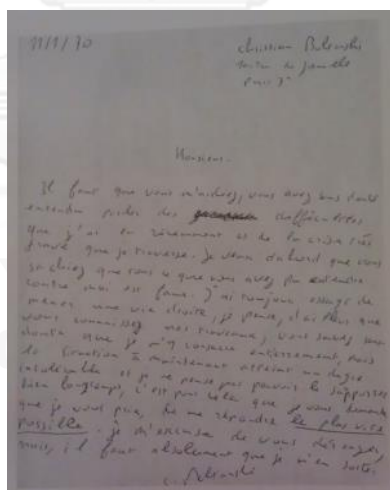 11/1/70
Christian
Paris 7e
Monsieur.
Il faut que vous m'aidiez, vous avez sans doute
entendu parler des difficultés
que j'ai eu récemment et de la crise très
grave que je traverse. Je veux d'abord que vous
sachiez que tout ce que vous avez pu entendre
contre moi est faux. J'ai toujours essayé de
mener une vie droite, je pense, d'ailleurs que
vous connaissez mes travaux, vous savez sans
doute que je m'y consacre entièrement, mais
la situation a maintenant atteint un degré
intolérable et je ne pense pas pouvoir le supporter
bien longtemps, c'est pour cela que je vous demande
que je vous prie, de me répondre le plus vite
possible. je m'excuse de vous déranger,
mais, il faut absolument que je m'en sorte.